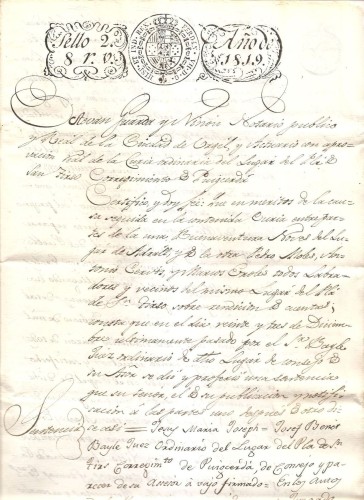 Sello 2.
8 r.s v.n
Año de
1819.
Estevan y Ninòs Notario publico
y Real de la Ciudad de Urgél, y Notario con apro-
vacion Real de la Curia ordinaria del Lugar del Plá de
San Tirso Corregimiento de Puigcerdá
Certifico, y doy fe: que en meritos de la cau-
sa seguida en la contenida Curia entre par-
tes de la una Buenaventura del Lu-
gar de y de la otra Pedro Moles, An-
tonio y Marcos todos Labra-
dores, y vecinos del mismo Lugar del Plá
de S.n Tirso, sobre rendicion de cuentas;
consta que en el dia veinte y tres de Diciem-
bre ultimamente pasado por el S.r Bayle
Juez ordinario de dho Lugar de consejo de
su se dió, y profirió una sentencia
que su tenor, el de su publicacion y notifi-
cacion à las partes uno despues de otro
Sentencia es asi = Jesus Maria Joseph = Josef Bonis
Bayle Juez Ordinario del Lugar del Plá de San
Tirs Corregim.to de Puigcerdá, de Consejo y pa-
recer de su à bajo firmado = En los Autos